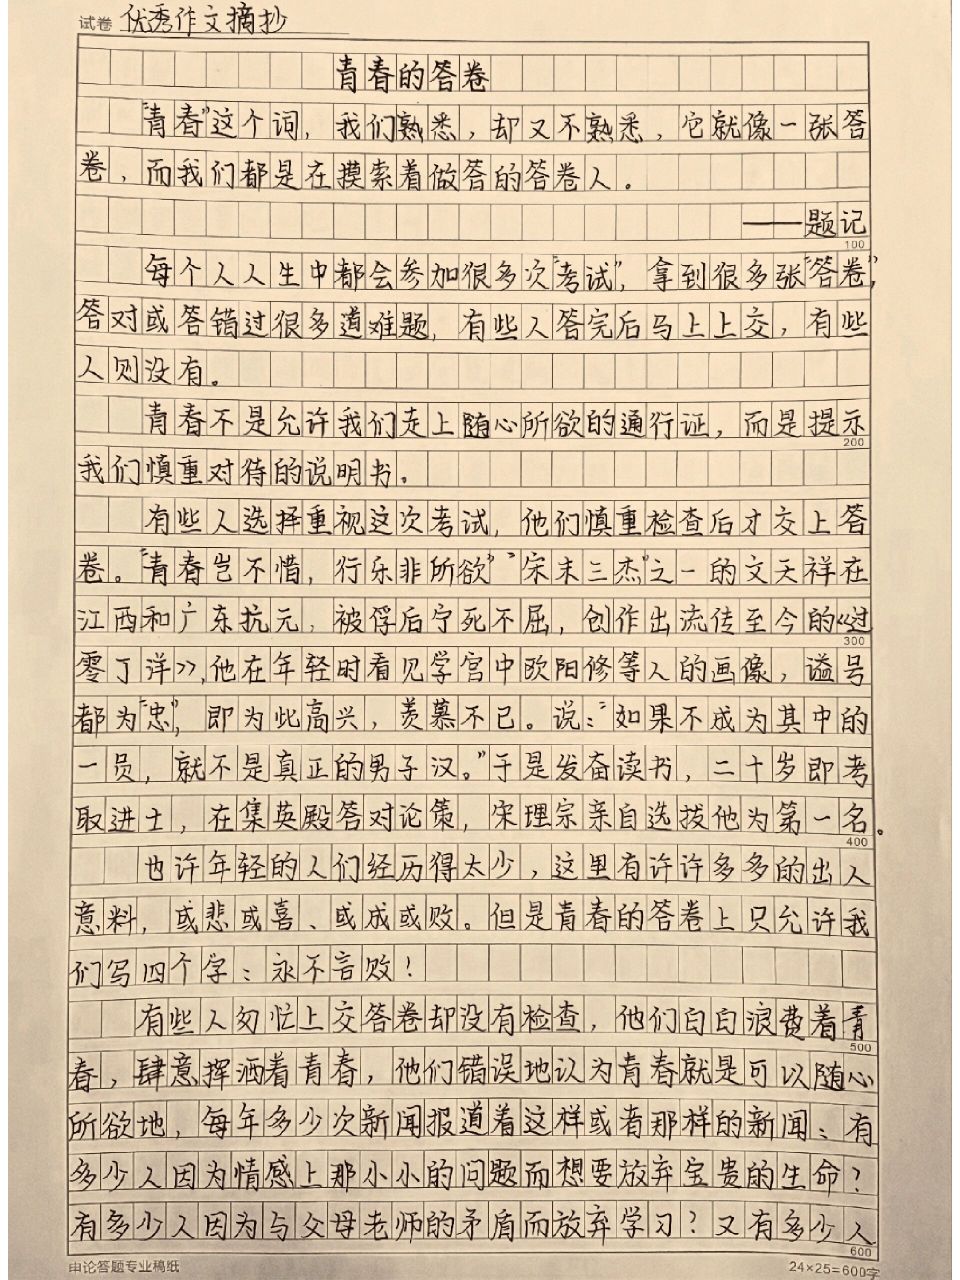 试卷 优秀作文摘抄
青春的答卷
"青春"这个词，我们熟悉，却又不熟悉，它就像一张答
卷，而我们都是在摸索着做答的答卷人。
——题记
100
每个人人生中都会参加很多次"考试"，拿到很多张"答卷"，
答对或答错过很多道难题，有些人答完后马上上交，有些
人则没有。
青春不是允许我们走上随心所欲的通行证，而是提示
200
我们慎重对待的说明书。
有些人选择重视这次考试，他们慎重检查后才交上答
卷。"青春岂不惜，行乐非所欲""宋末三杰"之一的文天祥在
江西和广东抗元，被俘后宁死不屈，创作出流传至今的《过
300
零丁洋》，他在年轻时看见学宫中欧阳修等人的画像，谥号
都为"忠"，即为此高兴，羡慕不已。说："如果不成为其中的
一员，就不是真正的男子汉。"于是发奋读书，二十岁即考
取进士，在集英殿答对论策，宋理宗亲自选拔他为第一名。
400
也许年轻的人们经历得太少，这里有许许多多的出人
意料，或悲或喜、或成或败。但是青春的答卷上只允许我
们写四个字：永不言败！
有些人匆忙上交答卷却没有检查，他们白白浪费着青
500
春，肆意挥洒着青春，他们错误地认为青春就是可以随心
所欲地，每年多少次新闻报道着这样或者那样的新闻：有
多少人因为情感上那小小的问题而想要放弃宝贵的生命？
有多少人因为与父母老师的矛盾而放弃学习？又有多少人
600
申论答题专业稿纸 24×25=600字